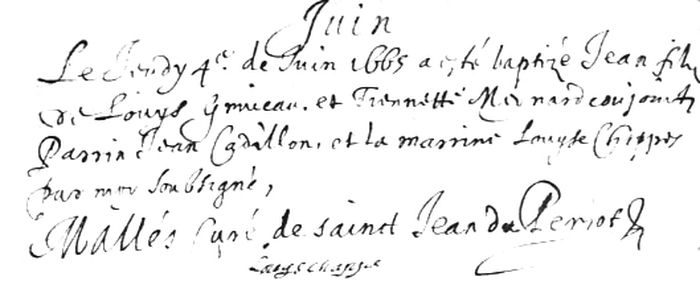 Juin
Le Jeudy 4e. de Juin 1665 a esté baptizé Jean filz
de Louys et Fiennette Menard conjoints
Parrin Jean Cadillon, et la marrine Louyse Chippes
par moy soubsigné,
Mallés Curé de sainct Jean du Periot
Louyschappe